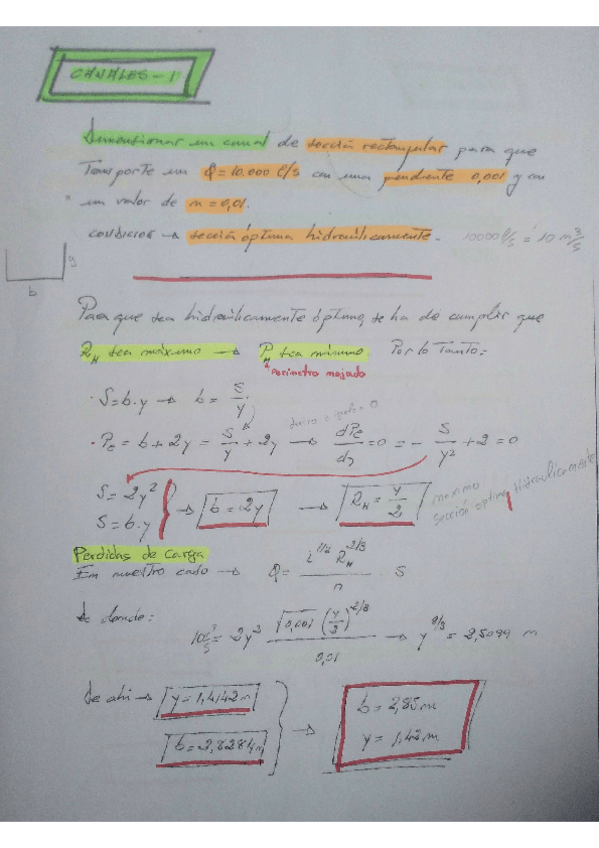 CANALES - 1
Dimensionar un canal de sección rectangular para que
Transporte un Q = 10.000 l/s con una pendiente 0,001 y con
un valor de n = 0,01.
CONDICION → sección óptima hidraúlicamente. 10000 l/s = 10 m³/s
y
b
Para que sea hidraúlicamente óptima, se ha de cumplir que
R_H sea máximo → P_M sea mínimo Por lo Tanto:
Perímetro mojado
· S = b·y → b = S/y
· Pe = b + 2y = S/y + 2y → dPe/dy = 0 = - S/y² + 2 = 0
S = 2y²
S = b·y → b = 2y → R_H = y/2 maximo
sección óptima Hidraulicamente
Perdidas de carga
En nuestro caso → Q = i^1/2 R_H^2/3 / n · S
de donde:
10 m³/s = 2y² √0,001 (y/2)^2/3 / 0,01 → y^8/3 = 2,5099 m
de ahi → y = 1,4142 m
b = 2,8284 m → b = 2,85 m
y = 1,42 m